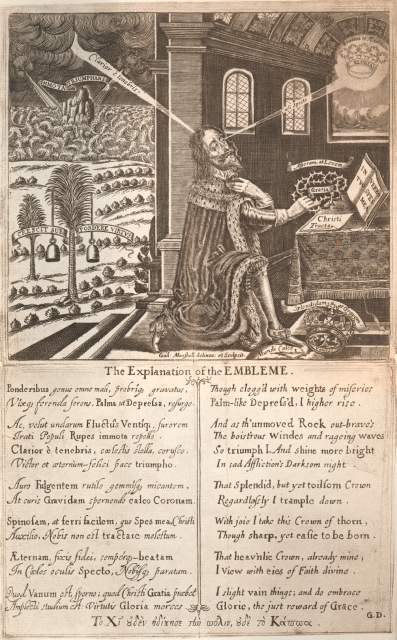 Clarior è tenebris
IMMOTA, TRIUMPHANS
CRESCIT SUB PONDERE VIRTUS
Coeli Specto
Asperam at Levem
Gratia
IN VERBO TUO SPES MEA
Christi Tracto
Splendidam at Gravem
Mundi Calco
Guil. Marshall delineav. et Sculpsit.
The Explanation of the EMBLEME.
Ponderibus genus omne mali, probriq gravatus,
Vixq ferenda ferens, Palma ut Depressa, resurgo.
Ac, velut undarum Fluctûs Ventiq, furorem
Irati Populi Rupes immota repello.
Clarior è tenebris, cœlestis stella, corusco.
Victor et æternùm-felici pace triumpho.
Auro Fulgentem rutilo gemmisq micantem,
At curis Gravidam spernendo calco Coronam.
Spinosam, at ferri facilem, quo Spes mea, Christi
Auxilio, Nobis non est tractare molestum.
Æternam, fixis fidei, semperq-beatam
In Cœlos oculis Specto, Nobisq paratam.
Quod Vanum est, sperno; quod Christi Gratia præbet
Amplecti studium est: Virtutis Gloria merces.
Though clogg'd with weights of miseries
Palm-like Depress'd, I higher rise.
And as th'unmoved Rock out-brave's
The boistrous Windes and rageing waves
So triumph I. And shine more bright
In sad Affliction's Darksom night.
That Splendid, but yet toilsom Crown
Regardlessly I trample down.
With joie I take this Crown of thorn,
Though sharp, yet easie to be born.
That heav'nlie Crown, already mine,
I View with eies of Faith divine.
I slight vain things; and do embrace
Glorie, the just reward of Grace.
G.D.
Τὸ Χῖ οὐδὲν ἠδίκησε τὴν πόλιν, οὐδὲ τὸ Κάππα.